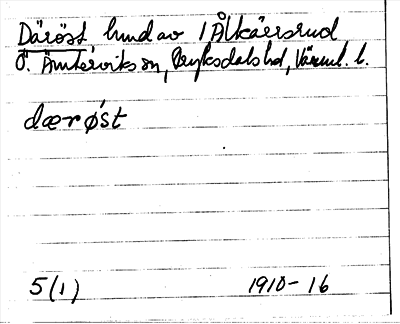 Däröst hmd av 1 Ålkärsrud
Ö. Ämterviks sn, Fryksdals hd, Värml. l.
dærøst
5(1) 1910-16